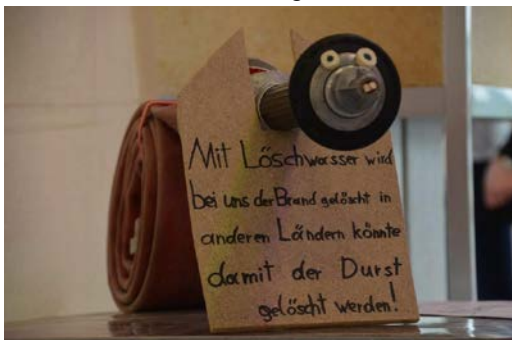 Mit Löschwasser wird
bei uns der Brand gelöscht in
anderen Ländern könnte
damit der Durst
gelöscht werden!